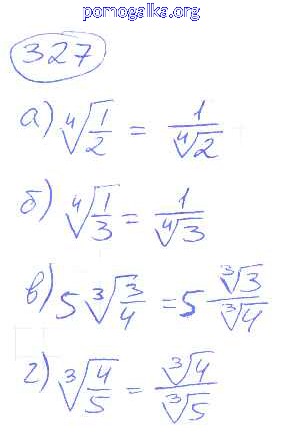 pomogalka.org
327
а) ⁴√(1/2) = 1/⁴√2
б) ⁴√(1/3) = 1/⁴√3
в) 5 ³√(3/4) = 5 ³√3/³√4
г) ³√(4/5) = ³√4/³√5